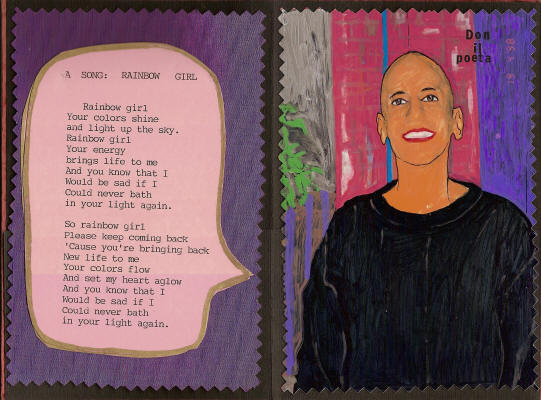 A SONG: RAINBOW GIRL
Rainbow girl
Your colors shine
and light up the sky.
Rainbow girl
Your energy
brings life to me
And you know that I
Would be sad if I
Could never bath
in your light again.
So rainbow girl
Please keep coming back
'Cause you're bringing back
New life to me
Your colors flow
And set my heart aglow
And you know that I
Would be sad if I
Could never bath
in your light again.
Don
il
poeta